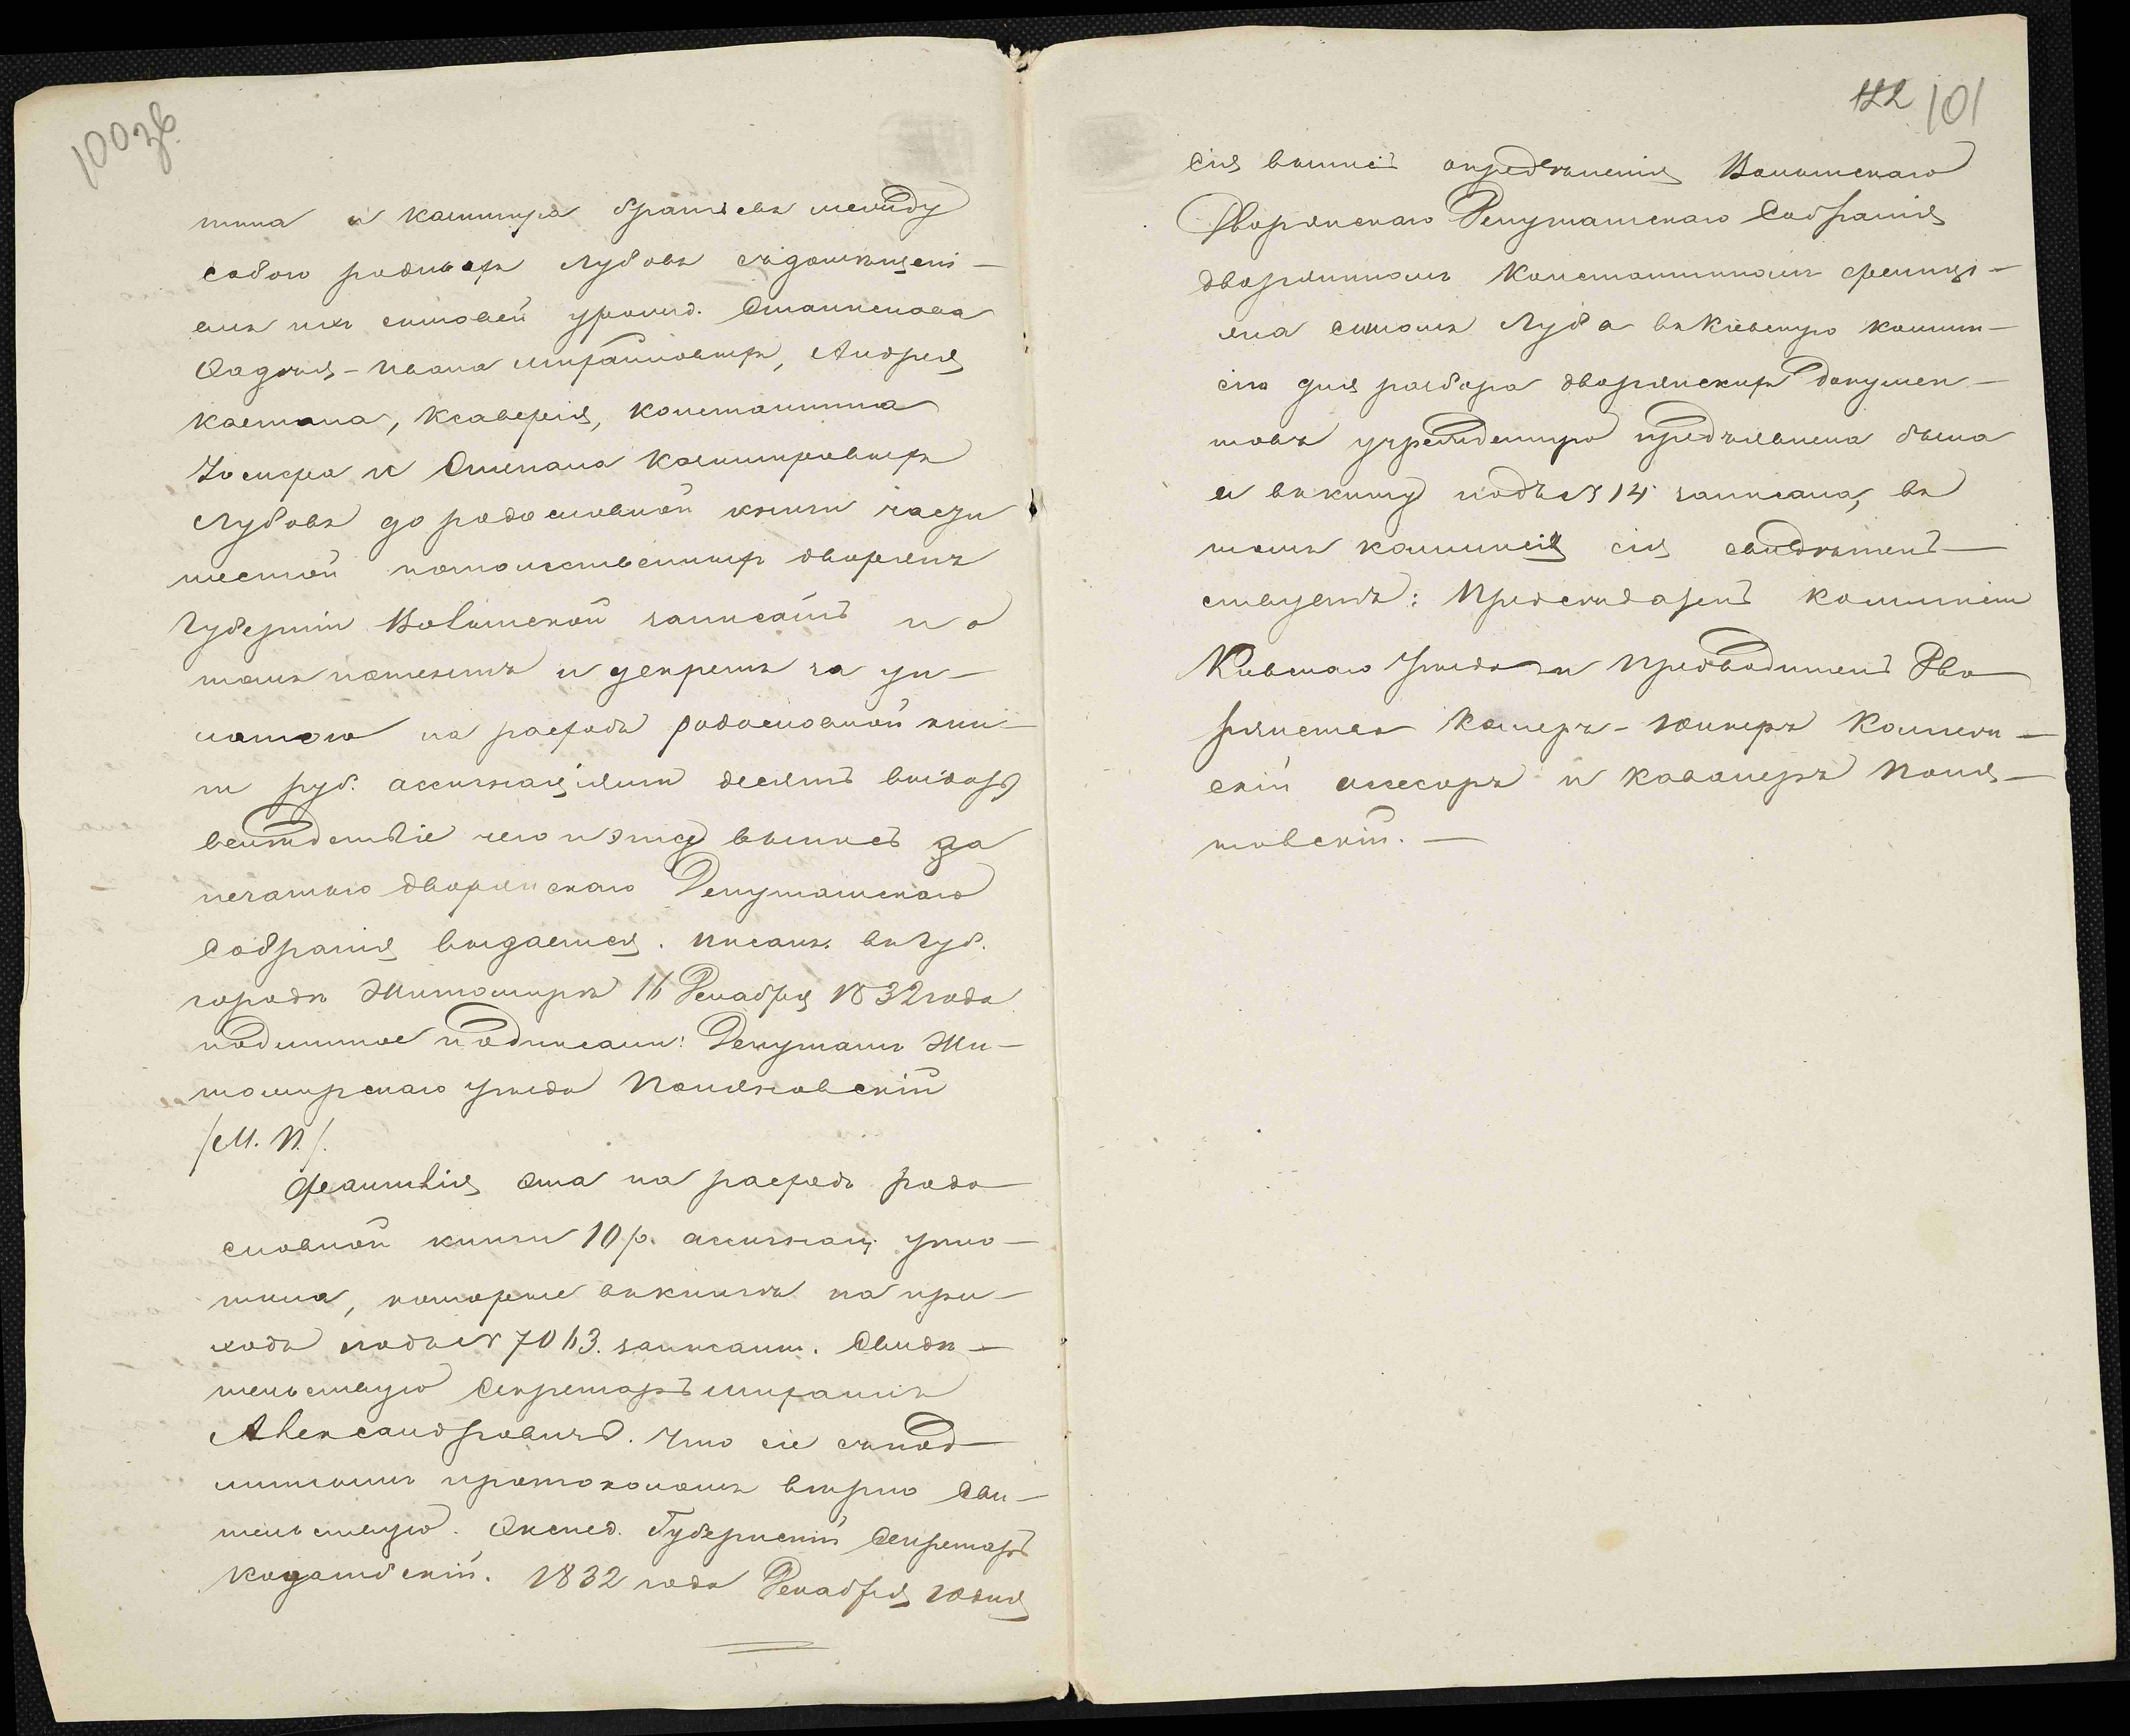 100зв.
тина и Казимира братьевъ между
собою родныхъ Лубовъ съ помѣщені-
емъ ихъ сыновей урожд. Станислава
Фадѣя-Ивана Михайловыхъ, Андрея
Каетана, Ксаверія, Константина
Іосифа и Степана Казимировыхъ
Лубовъ до родословной книги части
шестой потомственныхъ дворянъ
Губерніи Волынской записать и о
томъ патентъ и декретъ за уп-
латою на расходы родословной кни-
ги руб. ассигнаціями десять выдать
вслѣдствіе чего и этотъ выписъ за
печатью дворянскаго Депутатскаго
Собранія выдается. Писанъ въ Губ.
городѣ Житомирѣ 16 Декабря 1832 года
подлинное подписали: Депутатъ Жи-
томирскаго уѣзда
/М. П./.
Фамилія эта на расходъ родо
словной книги 10 р. ассигнац. упло-
тила, которые въ книгѣ на при-
ходъ подъ № 7063. записаны. Свидѣ-
тельствую Секретарь Михаилъ
Александровичъ. Что сіе съ под-
линнымъ протоколомъ вѣрно сви-
тельствую. Экспед. Губернскій Секретарь
1832 года Декабря 20 дня
122 101
Сія выписъ опредѣленія Волынскаго
Дворянскаго Депутатскаго Собранія
дворяниномъ Константиномъ Фелиці-
яна сыномъ Луба въ Кіевскую комми-
сію для разбора дворянскихъ докумен-
товъ учрежденную предъявлена была
и въ книгу подъ № 14 записана, въ
томъ коммисія сія свидѣтель-
ствуетъ: Предсѣдатель коммисіи
Кіевскаго Уѣзда Предводитель Дво
рянства Камеръ-Юнкеръ Коллеж-
скій ассесоръ и кавалеръ Поня-
товскій.—